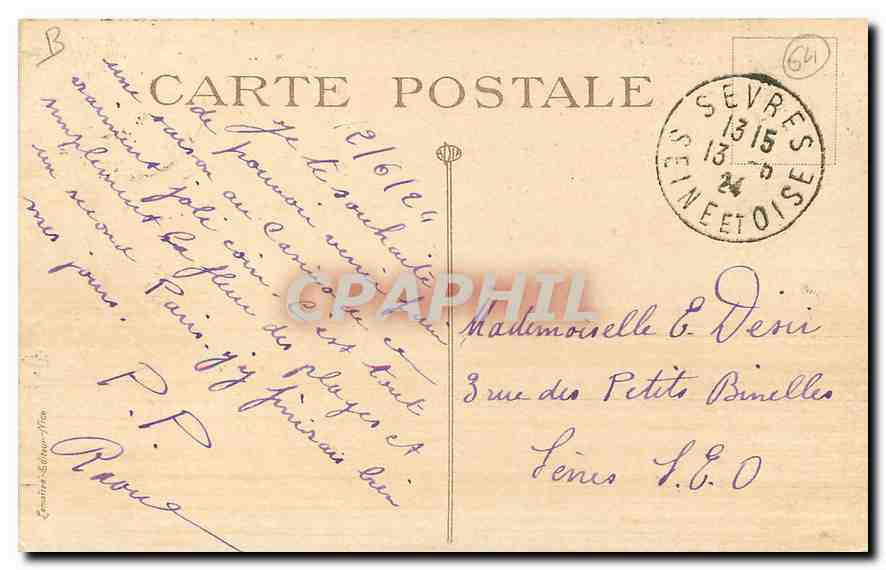 B
64
CARTE POSTALE
SEVRES
1315
13 -6
24
SEINE ET OISE
12/6/24
Je te souhaite
de pouvoir venir
une raison au Casino ce
vraiment joli coin. C'est tout
simplement la fleur des plages et
un second Paris. J'y finirais bien
mes jours.
P. P.
Raoul
Mademoiselle E. Désir
3 rue des Petits Binelles
Sèvres S. E. O
Lemaitre-Editeur-Nice
CPAPHIL